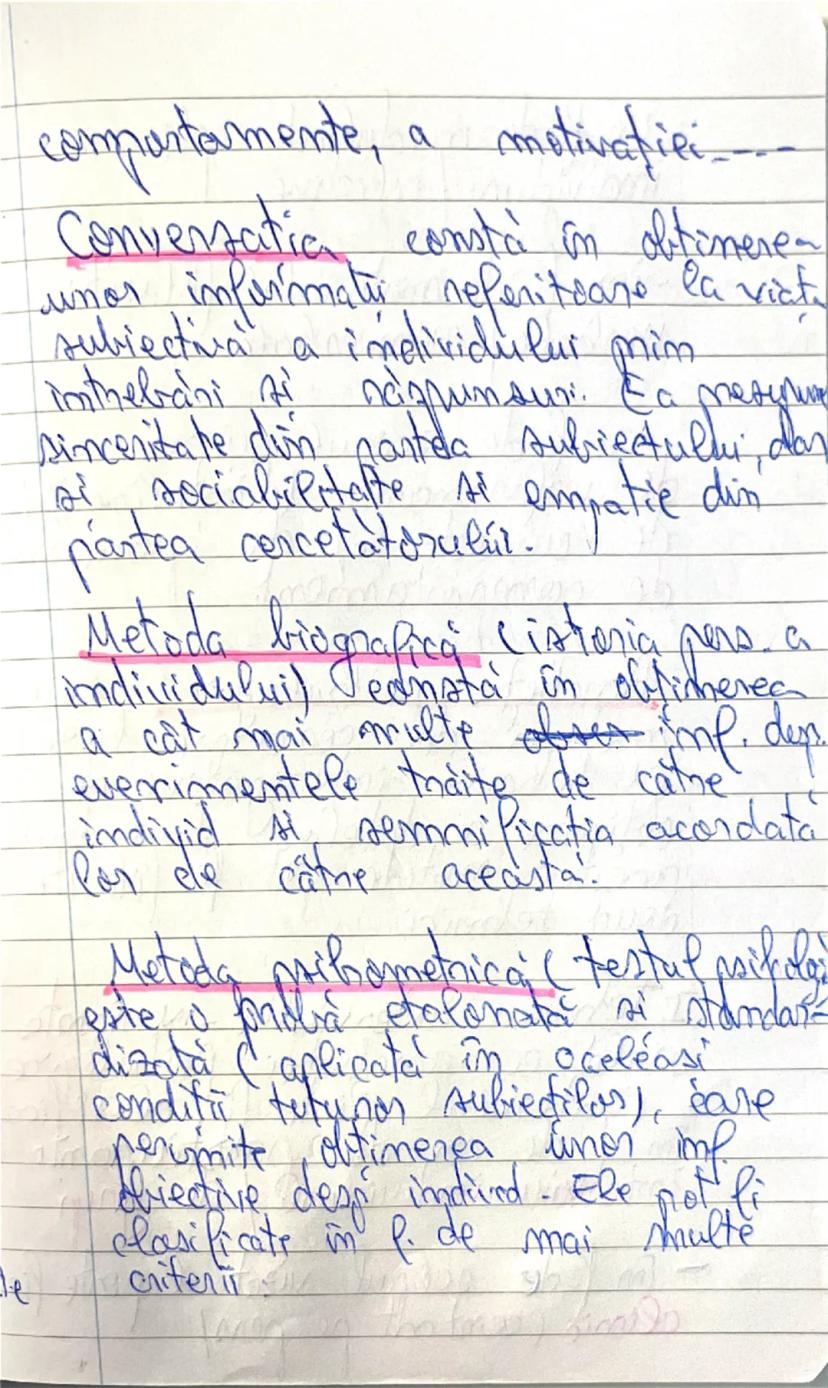 comportamente, a motivației----
Conversatia constă în obtinerea
unor informatii referitoare la viaț
subiectivă a individului prin
intrebări si răspunsuri. Ea presupun
sinceritate din partea subiectului, dar
si sociabilitate si empatie din
partea cercetătorului.
Metoda biografică (istoria pers. a
individului) constă în obținerea
a cât mai multe inf. desp.
evenimentele trăite de către
individ si semnificația acordată
lor de către aceasta.
Metoda psihometrică (testul psiholog
este o probă etalonată si standar-
dizată (aplicată în aceleasi
conditii tuturor subiecților), care
permite obtinerea unor inf.
obiective desp individ. Ele pot fi
clasificate in f. de mai multe
criterii:
le